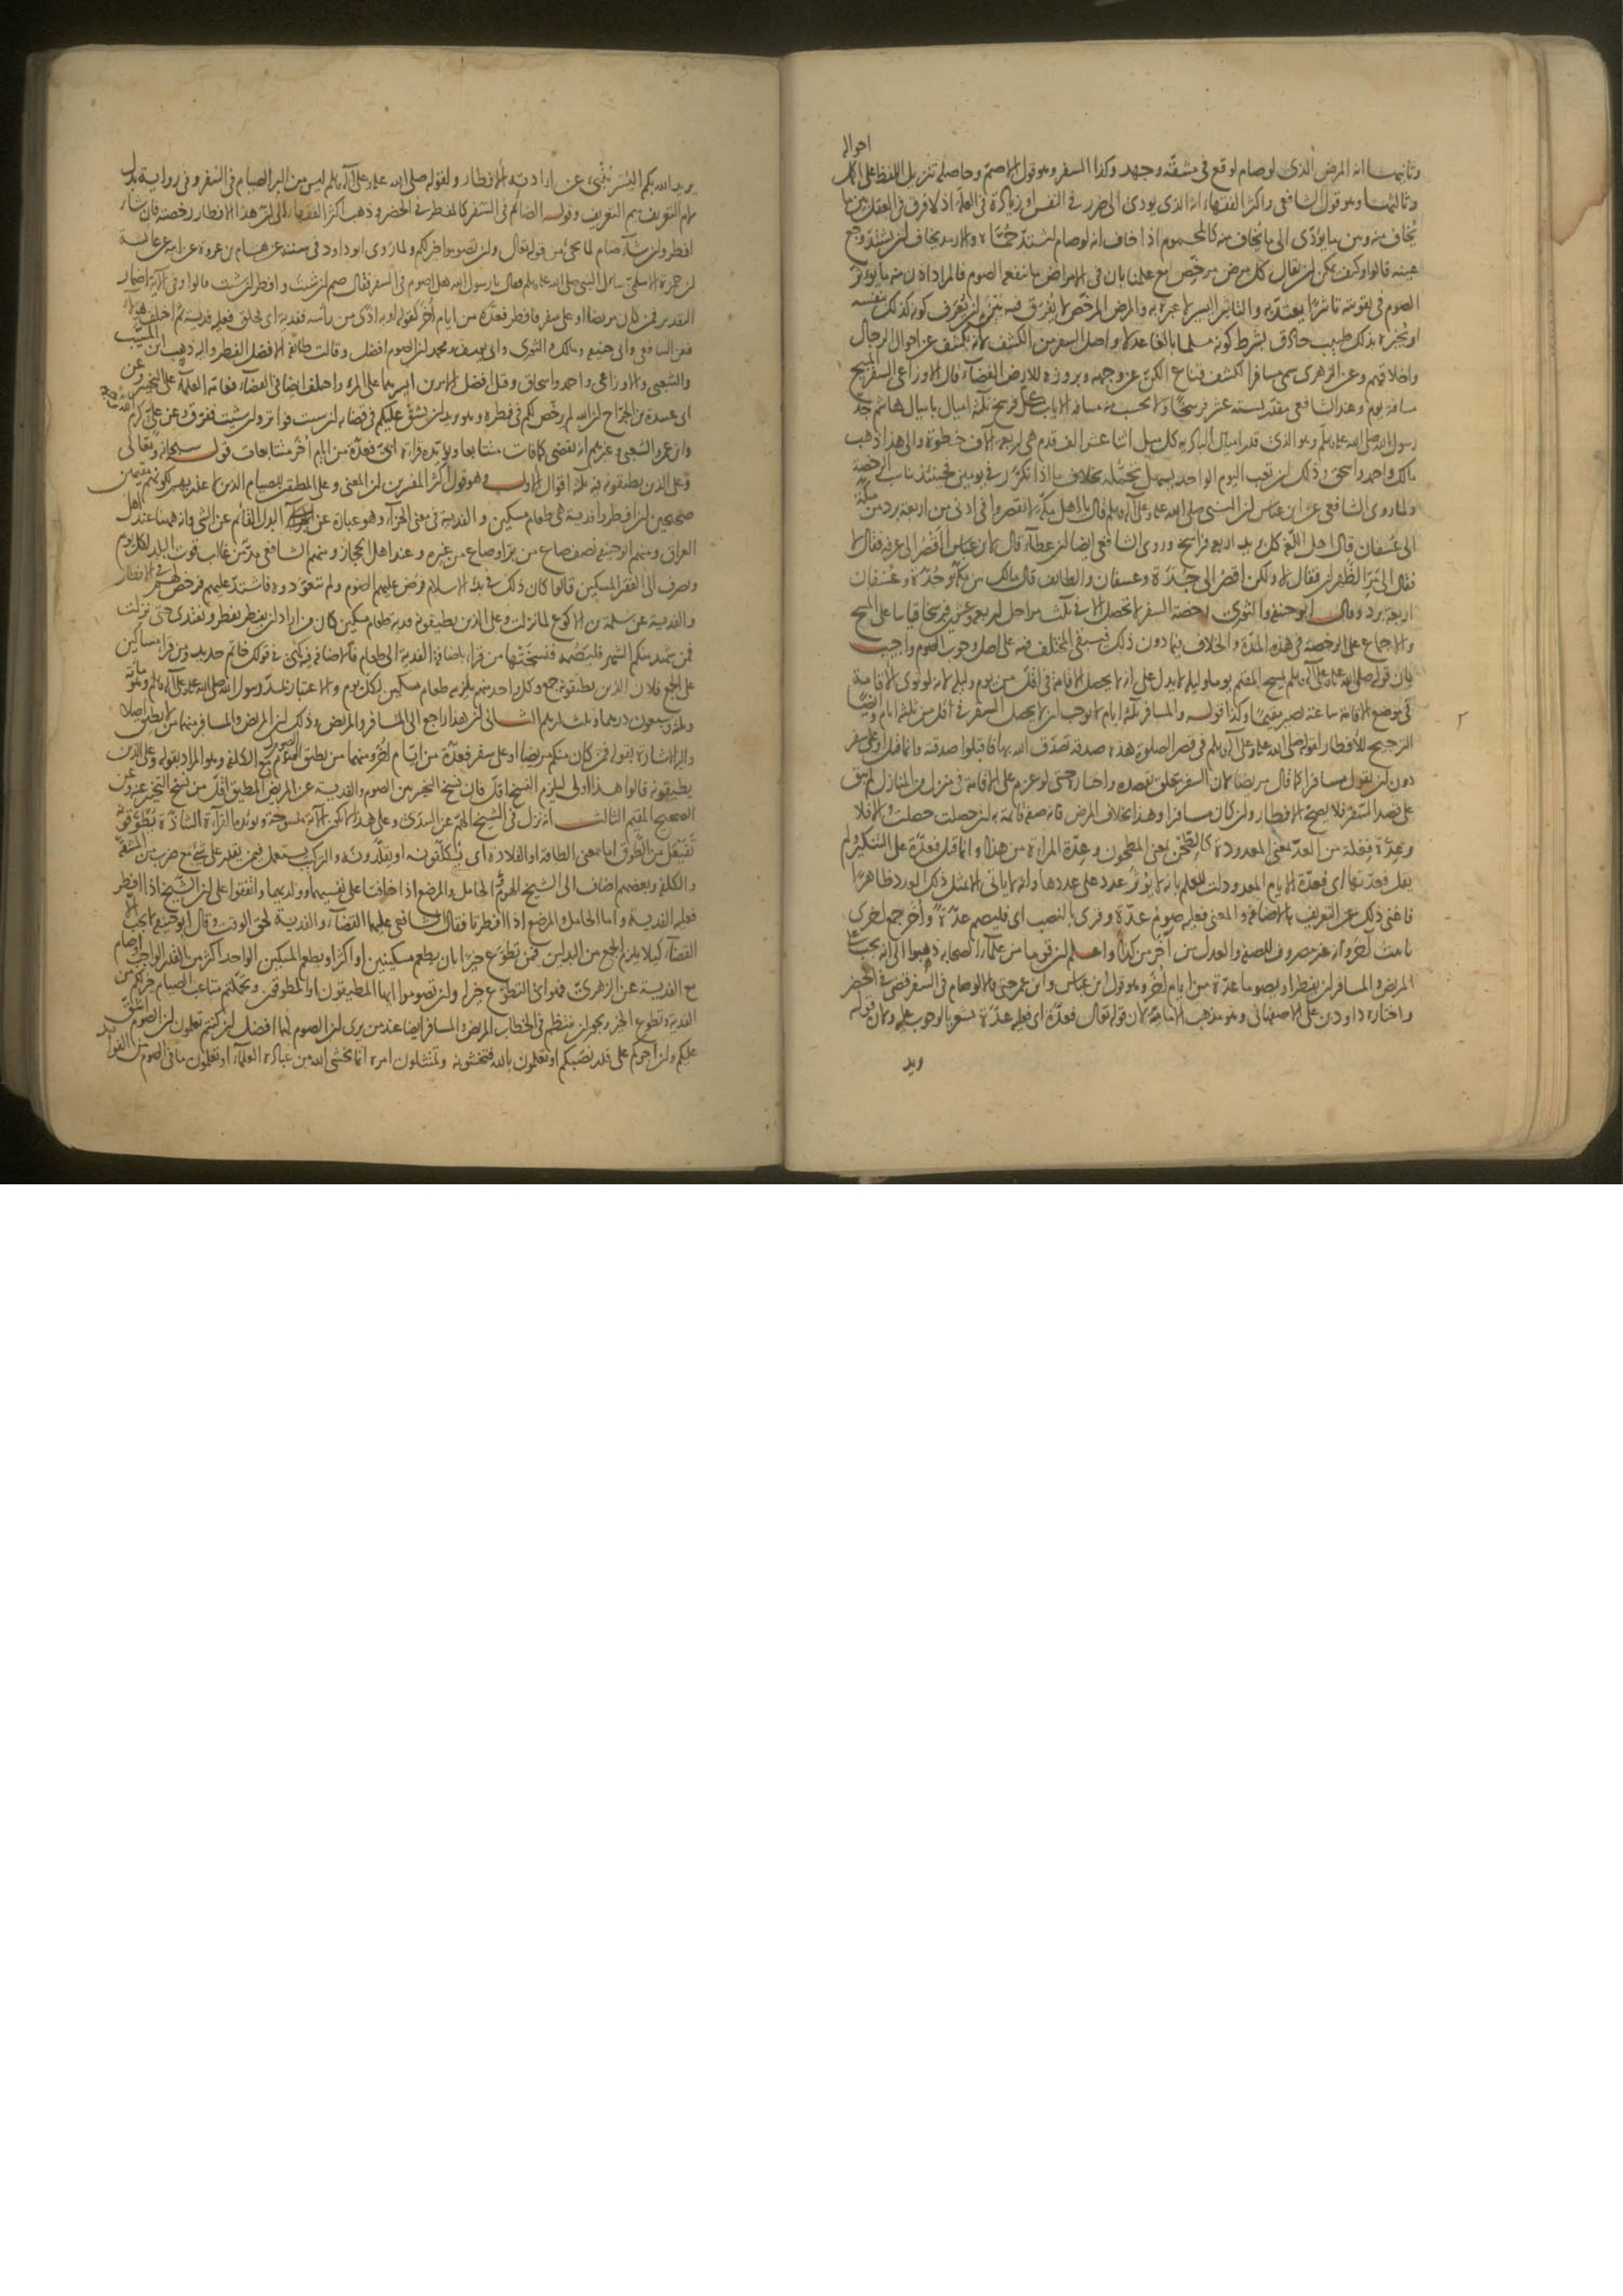 احواله
وثانيها ان المرض الذي لو صام لوقع في مشقة وجهد وكذا السفر وهو قول الاصم وحاصله تنزيل اللفظ على اكمل
وثالثها وهو قول الشافعي واكثر الفقهاء انه الذي يودي الى ضرر في النفس او زيادة في العلة اذ لا فرق في العقل بين ما
يخاف منه وبين ما يؤدي الى ما يخاف منه كالمحموم اذا خاف انه لو صام اشتد حماه والارمد يخاف ان يشتد وجع
عينه قالوا وكيف يمكن ان يقال كل مرض مرخص مع علمنا بان في الامراض ما ينفعه الصوم فالمراد اذن منه ما يؤثر
الصوم في تقويته تاثيرا يعتد به والتاثير اليسير لا عبرة به والمرض المرخص لا يفرق فيه بين ان يعرف كونه كذلك بنفسه
او يخبره بذلك طبيب حاذق بشرط كونه مسلما بالغا عدلا واصل السفر من الكشف لانه يكشف عن احوال الرجال
واخلاقهم وعن الازهري سمي مسافرا لكشف قناع الكن عن وجهه وبروزه للارض الفضاء قال الاوزاعي السفر المبيح
مسافة يوم وعند الشافعي مقدر بستة عشر فرسخا ولا يحسب منه مسافة الاياب كل فرسخ ثلثة اميال باميال هاشم جد
رسول الله صلى الله عليه وسلم وهو الذي قدر اميال البادية كل ميل اثنا عشر الف قدم هي اربعة آلاف خطوة والى هذا ذهب
مالك واحمد واسحق وذلك ان تعب اليوم الواحد يسهل تحمله بخلاف ما اذا تكرر في يومين فحينئذ يناسب الرخصة
ولما روى الشافعي عن ابن عباس ان النبي صلى الله عليه وعلى آله وسلم قال يا اهل مكة لا تقصروا في ادنى من اربعة برد من مكة
الى عسفان قال اهل اللغة كل بريد اربعة فراسخ وروى الشافعي ايضا ان عطاء قال لابن عباس اقصر الى عرفة فقال لا
فقال الى مر الظهران فقال لا ولكن اقصر الى جدة وعسفان والطائف قال مالك بين مكة وجدة وعسفان
اربعة برد وقال ابو حنيفة والثوري رخصة السفر لا تحصل الا في ثلث مراحل اربعة وعشرين فرسخا قياسا على المسح
والاجماع على الرخصة في هذه المدة والخلاف فيما دون ذلك فيبقى المختلف فيه على اصل وجوب الصوم واجيب
بان قوله صلى الله عليه وعلى آله وسلم يمسح المقيم يوما وليلة لا يدل على انه لا يحصل الاقامة في اقل من يوم وليلة لانه لو نوى الاقامة
في موضع الاقامة ساعة يصير مقيما وكذا قوله والمسافر ثلثة ايام لا يوجب ان لا يحصل السفر في اقل من ثلثة ايام وايضا
الترجيح للافطار لقوله صلى الله عليه وعلى آله وسلم في قصر الصلوة هذه صدقة تصدق الله بها فاقبلوا صدقته وانما قيل او على سفر
دون ان يقول مسافرا كما قال مريضا لان السفر يتعلق بقصده واختياره حتى لو عزم على الاقامة في منزل من المنازل لم يبق
على قصد السفر فلا يصح الافطار وان كان مسافرا وهذا بخلاف المرض فانه صفة قائمة به ان حصلت حصلت والا فلا
وعدة فعلة من العد بمعنى المعدود كالطحن بمعنى المطحون وعدة المراة من هذا وانما قيل فعدة على التنكير ولم
يقل فعدتها اي فعدة الايام المعدودات للعلم بانه لا يؤثر عدد على عددها وانه لا ياتي الا بمثل ذلك العدد ظاهرا
فاغنى ذلك عن التعريف بالاضافة والمعنى فعليه صوم عدة وقرئ بالنصب اي فليصم عدة واخر جمع اخرى
تانيث آخر وانه غير مصروف للصفة والعدل عن آخر من كذا واعلم ان قوما من علماء الصحابة ذهبوا الى انه يجب على
المريض والمسافر ان يفطرا ويصوما عدة من ايام اخر وهو قول ابن عباس وابن عمر حتى قالا لو صام في السفر قضى في الحضر
واختاره داود بن علي الاصفهاني وهو مذهب الامامية لان قوله تعالى فعدة اي فعليه عدة يشعر بالوجوب عليه ولان قوله
يريد
يريد الله بكم اليسر ينبئ عن ارادته الافطار ولقوله صلى الله عليه وعلى آله وسلم ليس من البر الصيام في السفر وفي رواية بدل
لام التعريف ميم التعريف وقوله الصائم في السفر كالمفطر في الحضر وذهب اكثر الفقهاء الى ان هذا الافطار رخصة فان شاء
افطر وان شاء صام لما يجئ من قوله تعالى وان تصوموا خير لكم ولما روى ابو داود في سننه عن هشام بن عروة عن ابيه عن عائشة
ان حمزة الاسلمي سال النبي صلى الله عليه وسلم فقال يا رسول الله هل اصوم في السفر فقال صم ان شئت وافطر ان شئت قالوا وفي الآية اضمار
التقدير فمن كان مريضا او على سفر فافطر فعدة من ايام اخر كقوله او به اذى من رأسه ففدية اي فحلق فعليه فدية ثم اختلف هؤلاء
فعن الشافعي وابي حنيفة ومالك والثوري وابي يوسف ومحمد ان الصوم افضل وقالت طائفة الافضل الفطر واليه ذهب ابن المسيب
والشعبي والاوزاعي واحمد واسحاق وقيل افضل الامرين ايسرهما على المرء واختلف ايضا في القضاء فعامة العلماء على التخيير وعن
ابي عبيدة بن الجراح ان الله لم يرخص لكم في فطره وهو يريد ان يشق عليكم في قضائه ان شئت فواتر وان شئت ففرق وعن علي كرم الله وجهه
وابن عمر والشعبي وغيرهم انه يقضي كما فات متتابعا ويؤيده قراءة ابي فعدة من ايام اخر متتابعات قوله سبحانه وتعالى
وعلى الذين يطيقونه فيه ثلثة اقوال الاول وهو قول اكثر المفسرين ان المعنى وعلى المطيقين للصيام الذين لا عذر بهم لكونهم مقيمين
صحيحين ان افطروا فدية هي طعام مسكين والفدية في معنى الجزاء وهو عبارة عن البدل القائم عن الشئ وانه ههنا عند اهل
العراق ومنهم ابو حنيفة نصف صاع من بر او صاع من غيره وعند اهل الحجاز ومنهم الشافعي مد من غالب قوت البلد لكل يوم
ويصرف الى الفقراء والمساكين قالوا كان ذلك في بدء الاسلام فرض عليهم الصوم ولم يتعودوه فاشتد عليهم فرخص لهم في الافطار
والفدية عن سلمة بن الاكوع لما نزلت وعلى الذين يطيقونه فدية طعام مسكين كان من اراد ان يفطر يفطر ويفتدي حتى نزلت
فمن شهد منكم الشهر فليصمه فنسختها من قراء باضافة الفدية الى طعام فالاضافة فيه كهي في قولك خاتم حديد ومن قرأ مساكين
على الجمع فلان الذين يطيقونه جمع وكل واحد منهم يلزمه طعام مسكين لكل يوم والاعتبار بمد رسول الله صلى الله عليه وعلى آله وسلم وهو مائة
وثلثة وسبعون درهما وثلث درهم الثاني ان هذا راجع الى المسافر والمريض وذلك ان المريض والمسافر منهما من لا يطيق اصلا
واليه الاشارة بقوله فمن كان منكم مريضا او على سفر فعدة من ايام اخر ومنهما من يطيق الصوم مع الكلفة وهو المراد بقوله وعلى الذين
يطيقونه قالوا هذا اولى ليلزم النسخ اقل فان نسخ التخيير بين الصوم والفدية عن المريض المطيق اقل من نسخ التخيير عنه وعن
الصحيح المقيم الثالث انه نزل في الشيخ الهم عن السدي وعلى هذا لا تكون الآية منسوخة ويؤيده القراءة الشاذة يطوقونه
تفعيل من الطوق اما بمعنى الطاقة او القلادة اي يكلفونه او يقلدونه والتركيب يستعمل فيمن يقدر على شئ مع ضرب من المشقة
والكلفة وبعضهم اضاف الى الشيخ الهرم الحامل والمرضع اذا خافتا على نفسيهما وولديهما واتفقوا على ان الشيخ اذا افطر
فعليه الفدية واما الحامل والمرضع اذا افطرتا فقال الشافعي عليهما القضاء والفدية لحق الوقت وقال ابو حنيفة لا يجب الا
القضاء كيلا يلزم الجمع بين البدلين فمن تطوع خيرا بان يطعم مسكينين او اكثر او يطعم المسكين الواحد اكثر من القدر الواجب او صام
مع الفدية عن الزهري فهو اي التطوع خير له وان تصوموا ايها المطيقون او المطوقون وتحملتم متاعب الصيام خير لكم من
الفدية وتطوع الخير ويجوز ان ينتظم في الخطاب المريض والمسافر ايضا عند من يرى ان الصوم لهما افضل ان كنتم تعلمون ان الصوم اشق
عليكم وان اجركم على قدر نصبكم او تعلمون بالله فتخشونه وتمتثلون امره انما يخشى الله من عباده العلماء او تعلمون ما في الصوم من الفوائد